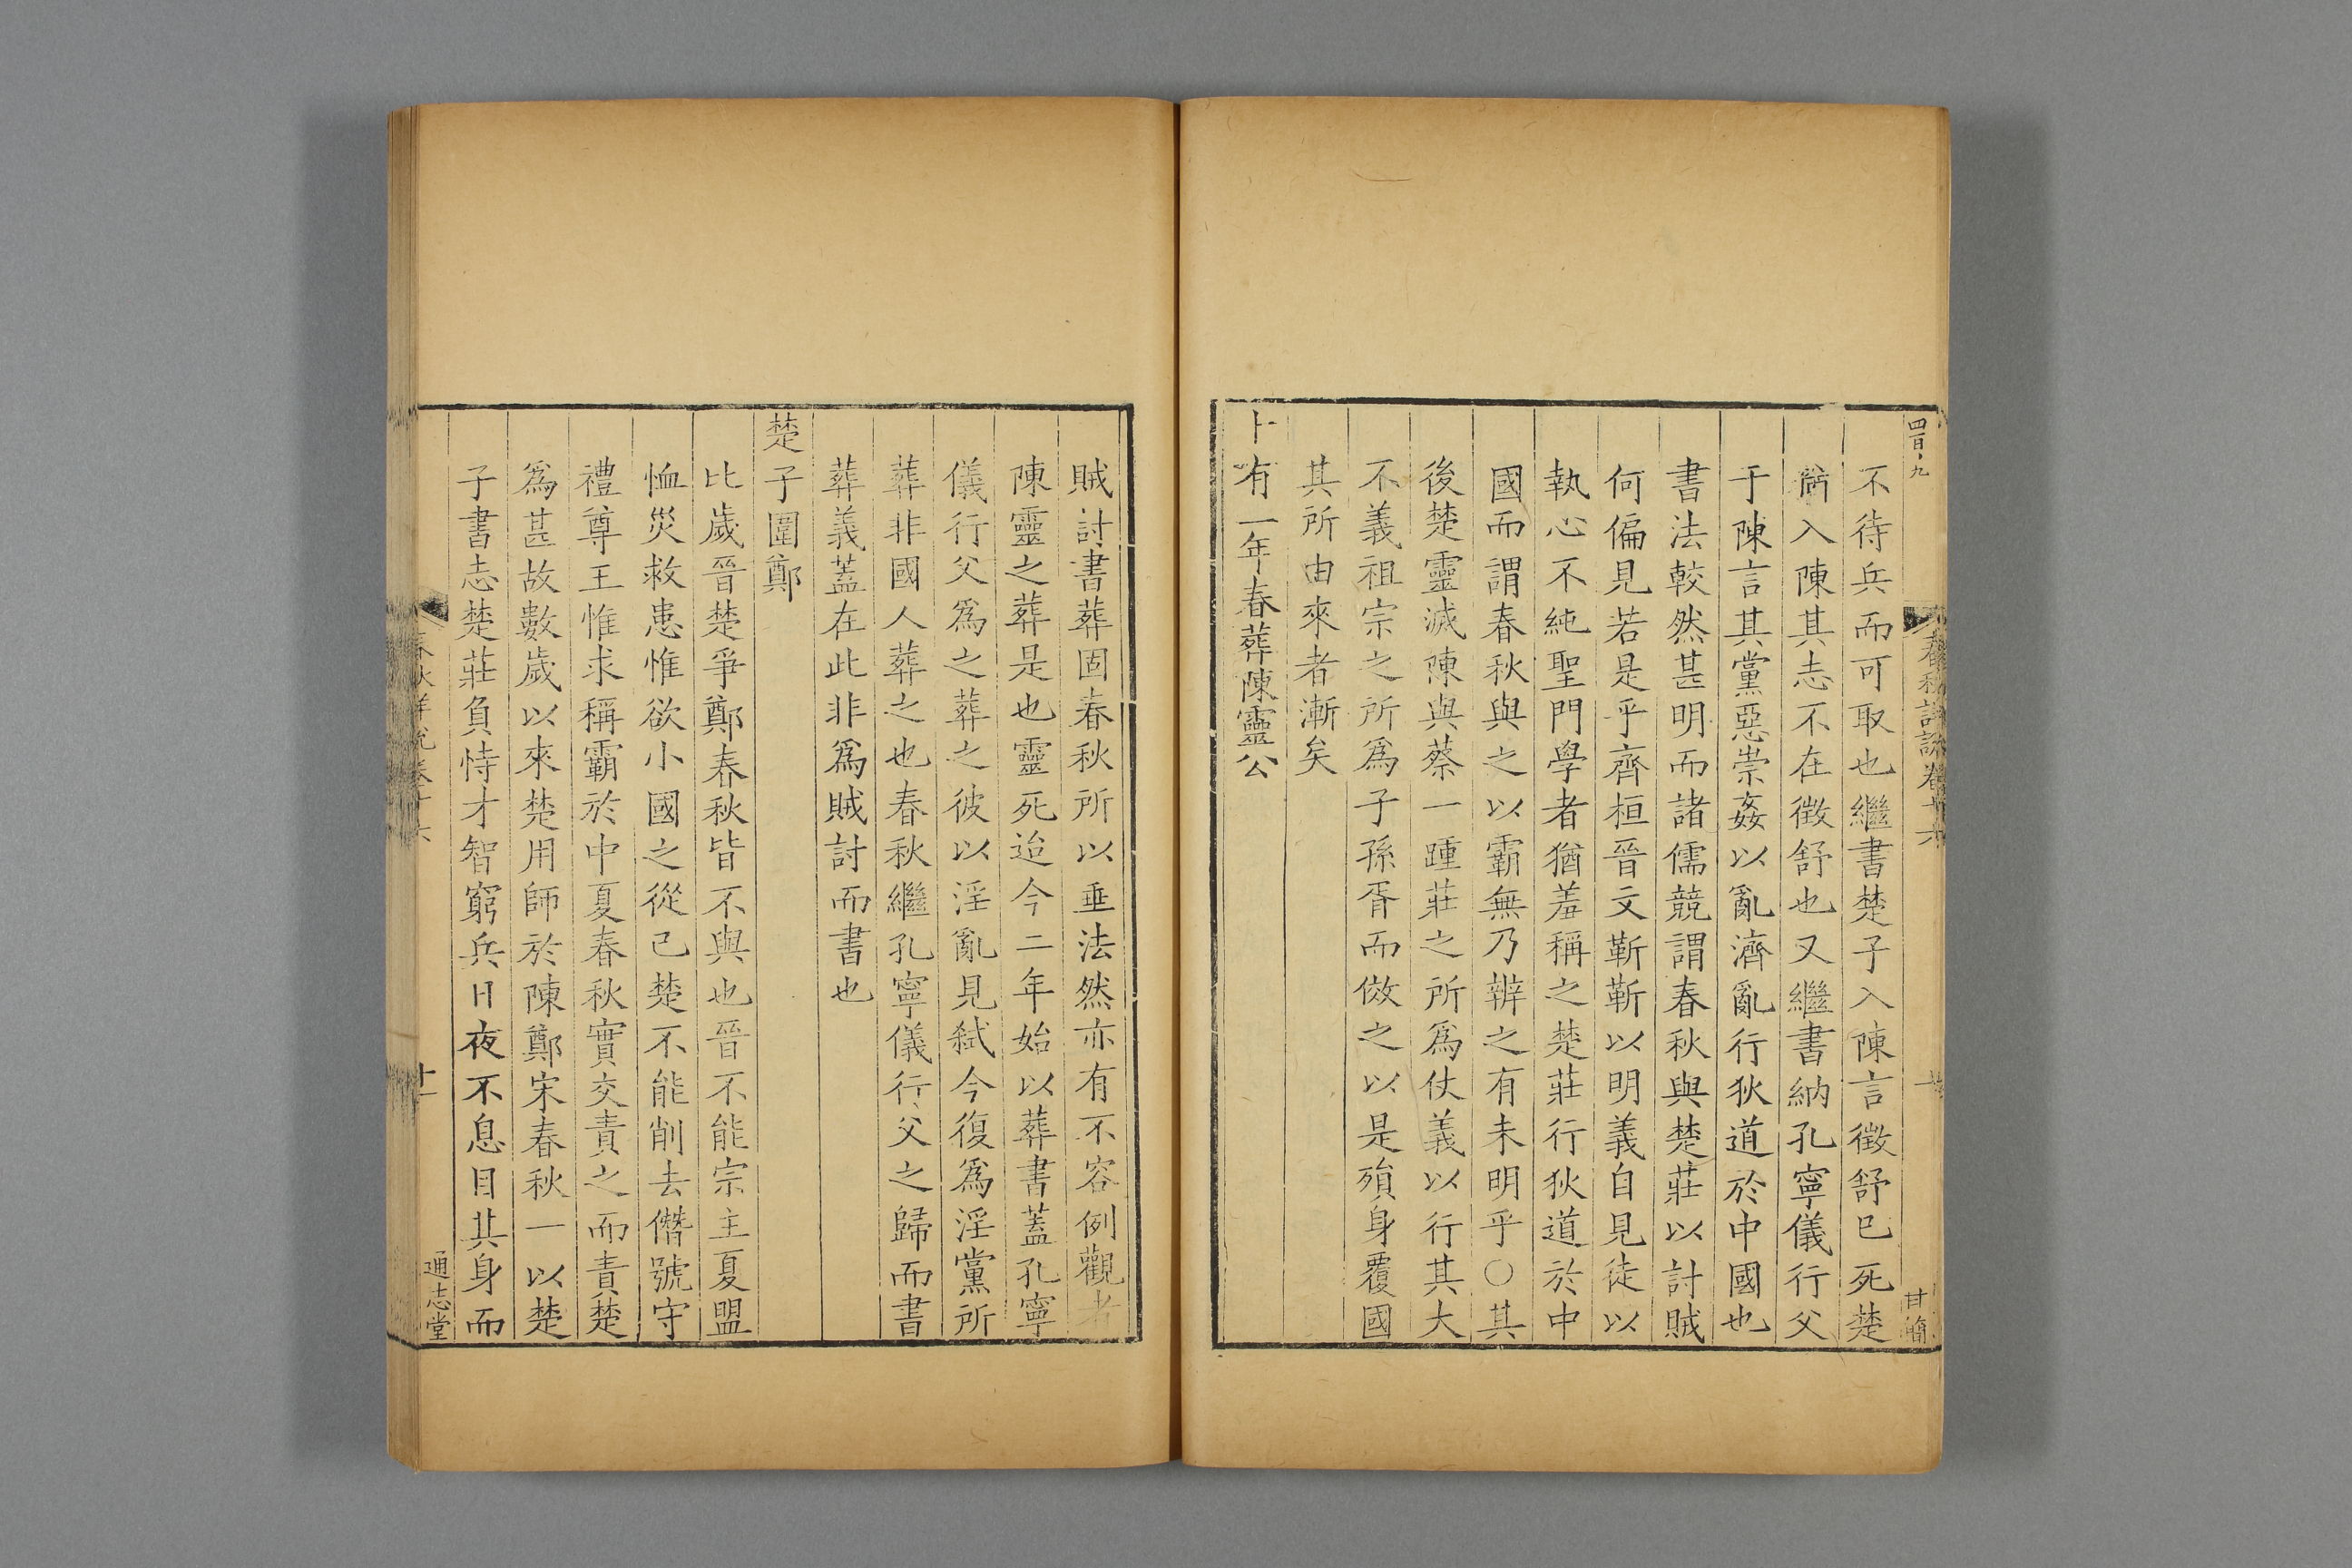 不待兵而可取也繼書楚子入陳言徵舒巳死楚
入陳其志不在徵舒也又繼書納孔寧儀行父
于陳言其黨惡崇姦以亂濟亂行狄道於中國也
書法較然甚明而諸儒競謂春秋與楚莊以討賊
何偏見若是乎齊桓晉文斬斬以明義自見徒以
執心不純聖門學者猶羞稱之楚莊行狄道於中
國而謂春秋與之以霸無乃辨之有未明乎○其
後楚靈滅陳與蔡一踵莊之所爲仗義以行其大
不義祖宗之所爲子孫胥而倣之以是殞身覆國
其所由來者漸矣
有一年春葬陳靈公
賊討書葬固春秋所以垂法然亦有不容例觀者
陳靈之葬是也靈死迨今二年始以葬書蓋孔寧
儀行父爲之葬之彼以淫亂見弑今復爲淫黨所
葬非國人葬之也春秋繼孔寧儀行父之歸而書
葬義蓋在此非爲賊討而書也
楚子圍鄭
比歲晉楚爭鄭春秋皆不與也晉不能宗主夏盟
恤災救患惟欲小國之從己楚不能削去僭號守
禮尊王惟求稱霸於中夏春秋實交責之而責楚
爲甚故數歲以來楚用師於陳鄭宋春秋一以楚
子書志楚莊負恃才智窮兵日夜不息目其身而
十一
通志堂